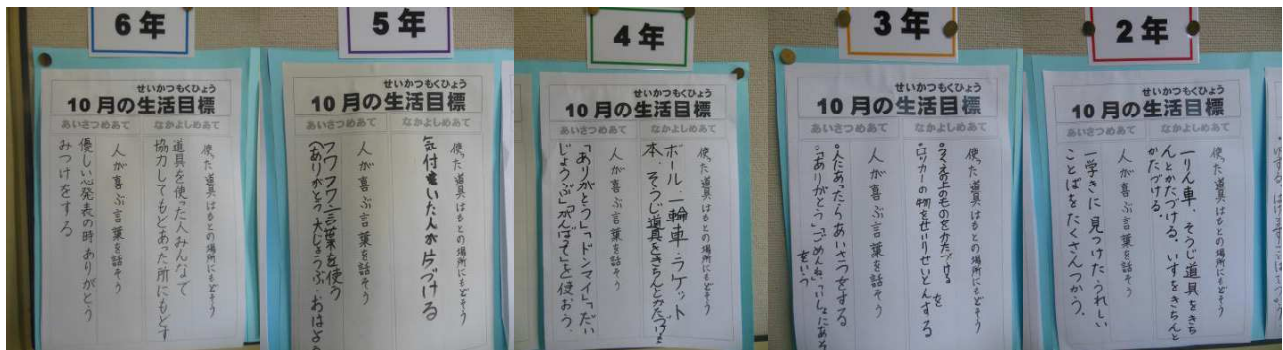 6年
せいかつもくひょう
10月の生活目標
あいさつめあて なかよしめあて
使った道具はもとの場所にもどそう
道具を使った人みんなで
協力してもどあった所にもどす
人が喜ぶ言葉を話そう
優しい心発表の時ありがとう
みつけをする
5年
せいかつもくひょう
10月の生活目標
あいさつめあて なかよしめあて
使った道具はもとの場所にもどそう
気付いた人が片づける
人が喜ぶ言葉を話そう
フワフワ言葉を使う
(ありがとう大じょうぶおはよう
4年
せいかつもくひょう
10月の生活目標
あいさつめあて なかよしめあて
使った道具はもとの場所にもどそう
ボール一輪車ラケット
本、そうじ道具をきちんとかたづける
人が喜ぶ言葉を話そう
「ありがとう」「ドンマイ」「だい
じょうぶ」「がんばって」を使おう。
3年
せいかつもくひょう
10月の生活目標
あいさつめあて なかよしめあて
使った道具はもとの場所にもどそう
つくえの上のものをかたづける
ロッカーの物をせいりせいとんする
人が喜ぶ言葉を話そう
人にあったらあいさつをする
「ありがとう」「ごめんね」
をいう
2年
せいかつもくひょう
10月の生活目標
あいさつめあて なかよしめあて
使った道具はもとの場所にもどそう
一りん車、そうじ道具をきち
んとかたづける。いすをきちんと
かたづける。
人が喜ぶ言葉を話そう
一学きに見つけたうれしい
ことばをたくさんつかう。